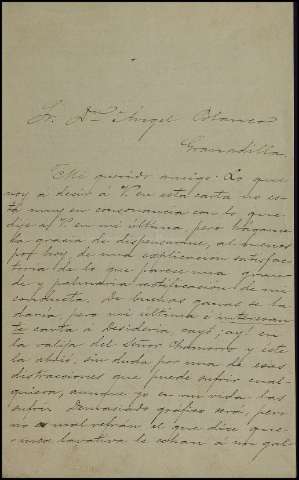 Sr. Dn. Angel Polanco
Granadilla.
Mi querido amigo: Lo que
voy a desir á V. en esta carta no es-
tá muy en consonancia con lo que
dije a V. en mi última pero hagame
la gracia de dispensarme, al menos
por hoy, de una esplicacion satisfac-
toria de lo que parece una gran-
de y palmaria rectificación de mi
conducta. De buenas ganas se la
daria, pero mi última é interesan-
te carta á Desideria, cayó ¡ay! en
la valija del Señor Chamorro y éste
la abrió, sin duda por una de esas
distracciones que puede sufrir cual-
quiera, aunque yo en mi vida las
sufrí. Demasiado gráfico será, pero
no es mal refrán el que dice que
lavativa le echan á un gal-